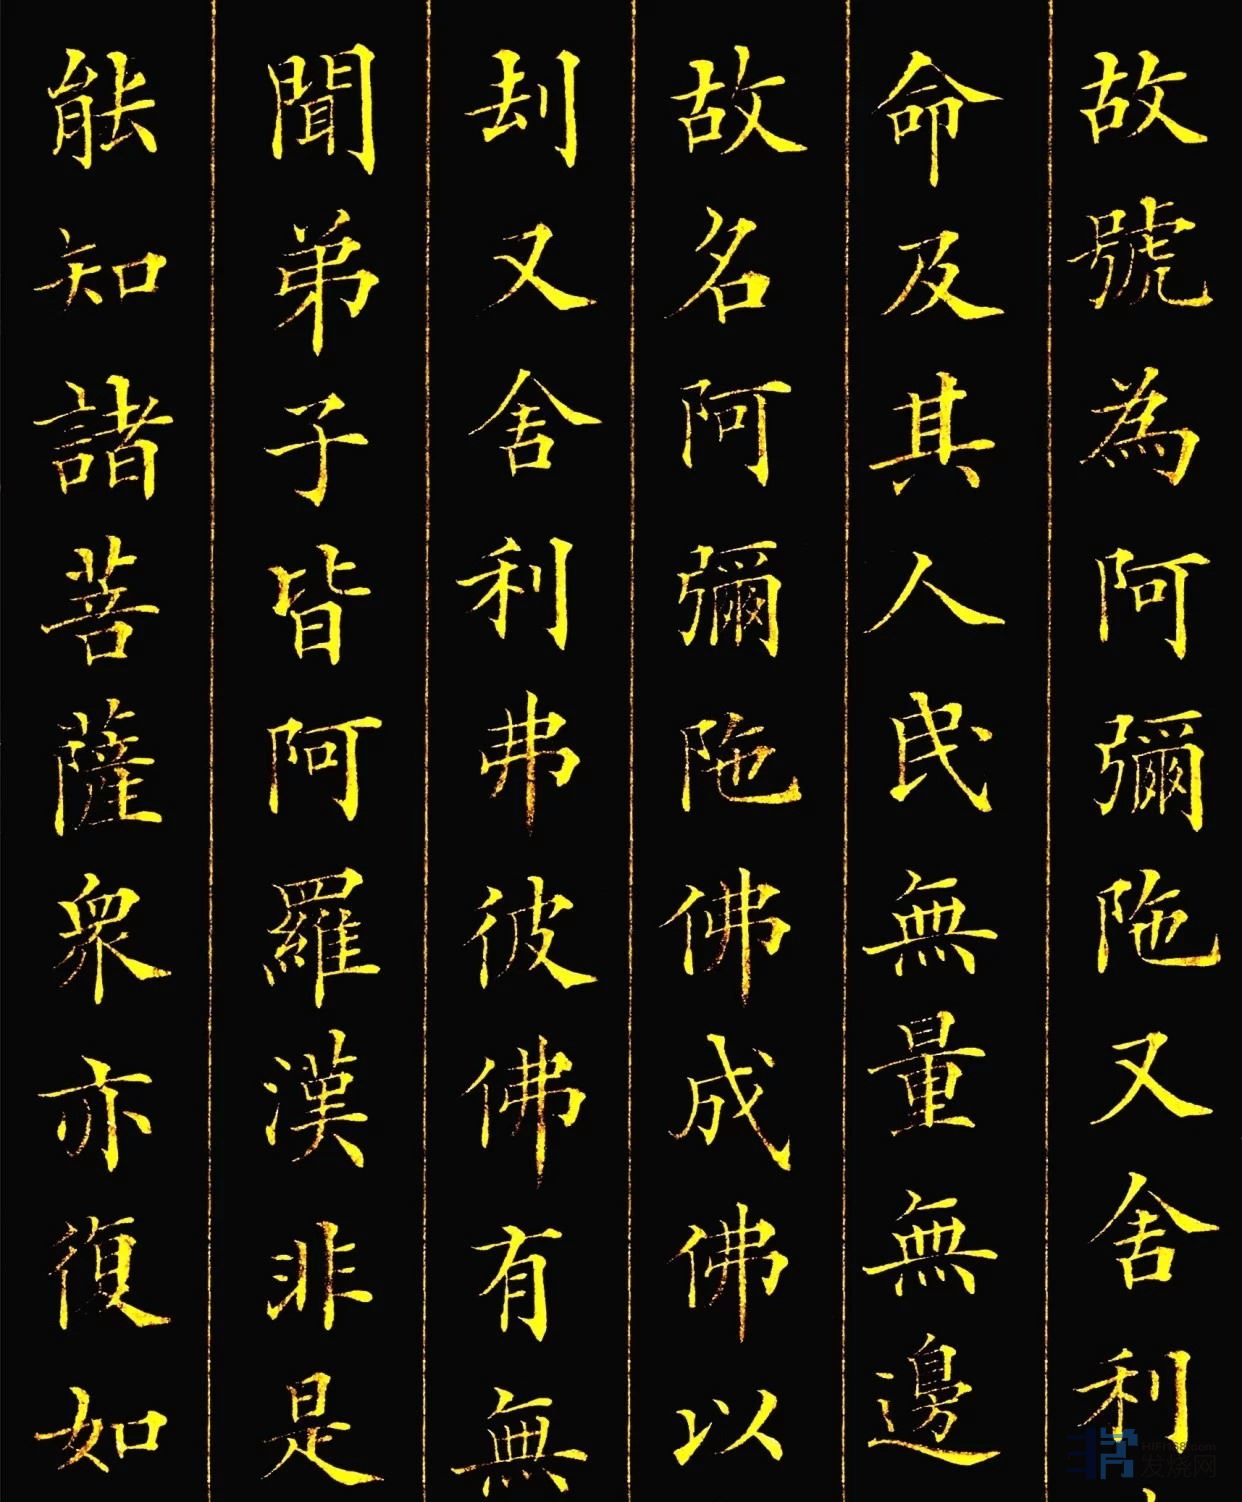 故號為阿彌陁又舍利
命及其人民無量無邊
故名阿彌陁佛成佛以
刦又舍利弗彼佛有無
聞弟子皆阿羅漢非是
能知諸菩薩眾亦復如
HIFI168.com
发烧网